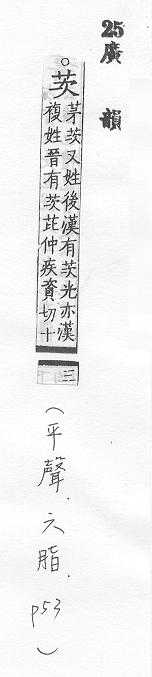 25廣韻
。茨茅茨又姓後漢有茨光亦漢
複姓晉有茨芘仲疾資切十
三
(平聲.六脂.p53)